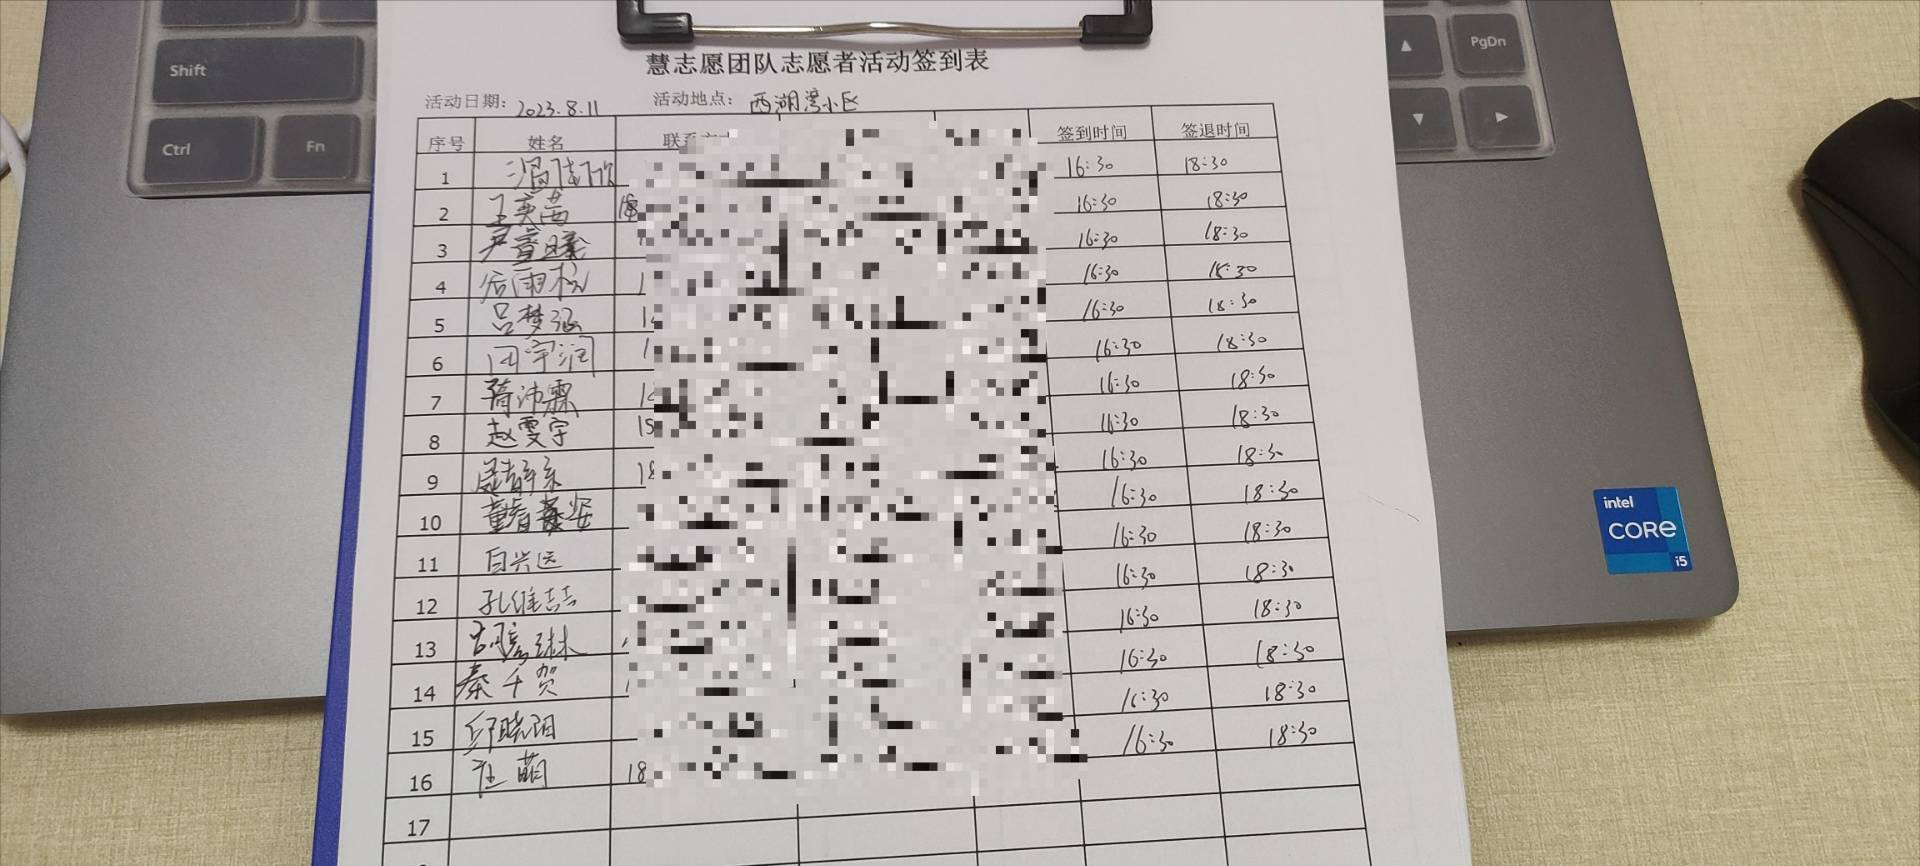 Shift
Ctrl
Fn
PgDn
慧志愿团队志愿者活动签到表
活动日期: 2023.8.11 活动地点: 西湖湾小区
序号 姓名 签到时间 签退时间
1 16:30 18:30
2 王奕茜 16:30 18:30
3 16:30 18:30
4 16:30 18:30
5 吕梦涵 16:30 18:30
6 闫宇润 16:30 18:30
7 16:30 18:30
8 赵雯宇 15 16:30 18:30
9 18 16:30 18:30
10 16:30 18:30
11 白兴远 16:30 18:30
12 孔维喆 16:30 18:30
13 16:30 18:30
14 秦千贺 16:30 18:30
15 邱晓阳 16:30 18:30
16 汪萌 18 16:30 18:30
17
intel
CORE
i5